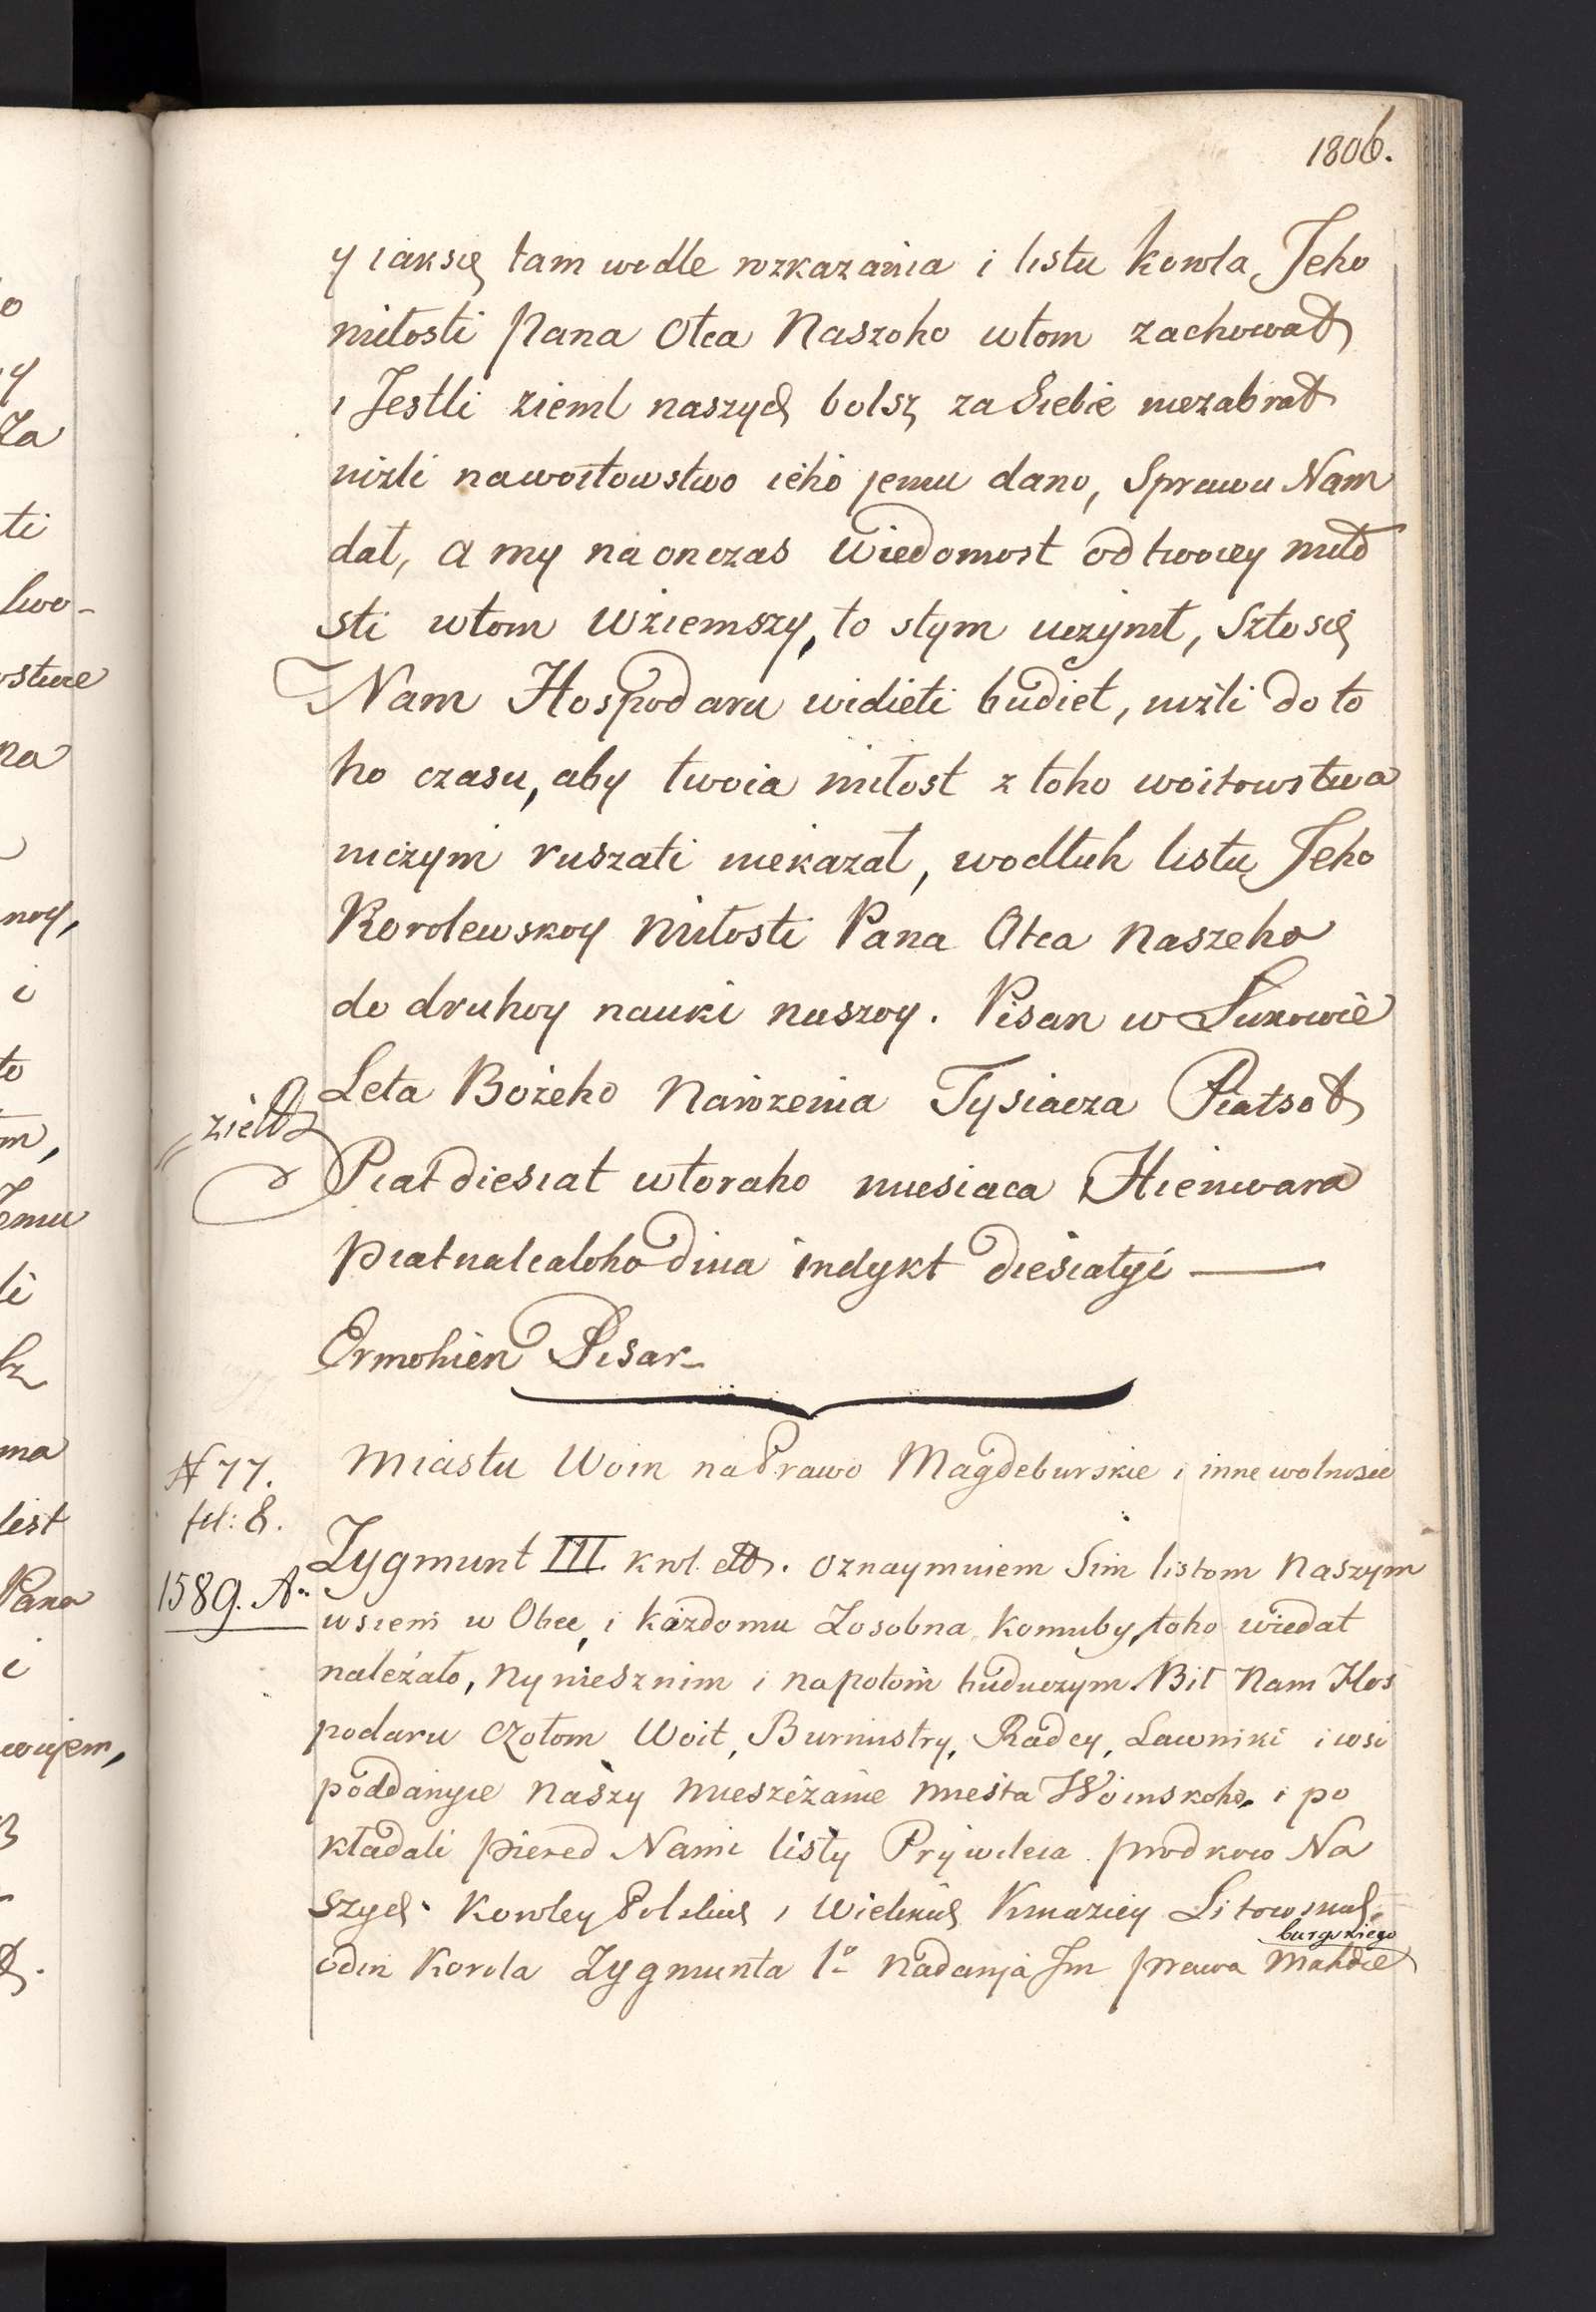 1806.
y iaksię tam wodle rozkazania i listu korola Jeho
miłosti Pana Otca Naszoho wtom zachował
i Jestli zieml naszych bolsz za Siebie niezabrał
niżli nawoitowstwo ieho jemu dano, Sprawu Nam
dał, a my na onczas Wiedomost od twoiey miło
sti wtom Wziemszy, to stym uczynit, Szto się
Nam Hospodaru widieti budiet, niżli do to
ho czasu, aby twoia miłost z toho woitowstwa
niczym ruszati niekazał, wodłuh listu Jeho
Korolewskoy Miłosti Pana Otca naszeho
do druhoy nauki naszoy. Pisan w Łukowie
Leta Bożeho Narozenia Tysiacza Piatsot
Piatdiesiat wtoraho miesiaca Hienwara
piatnatcatoho dnia indykt diesiatyi
Ormohien Pisar
N 77.
fol: 8.
1589. Ao
Miastu Woin na Prawo Magdeburskie i inne wolnosci
Zygmunt III krol etc. oznaymuiem Sim listom Naszym
wsiem w Obec, i każdomu Zosobna, komuby toho wiedat
należało, nyniesznim i napotom buduczym. Bił Nam Hos
podaru czołom Woit, Burmistry, Radcy, Ławniki i wsi
poddanyie Naszy mieszczanie miesta Woinskoho, i po
kładali pierед Nami listy Prywileia prodkow Na
szych Koroley Polskich i Wielikich Kniaziey Litowskich
odin Korola Zygmunta 1o nadanja Im prawa Mahde
burgskiego